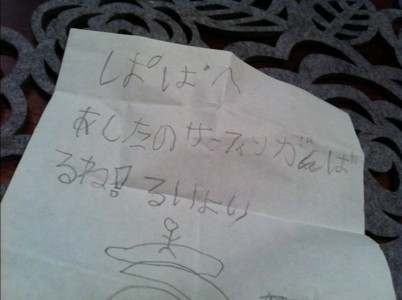 ぱぱへ
あしたのサーフィンがんば
るね!! るいより